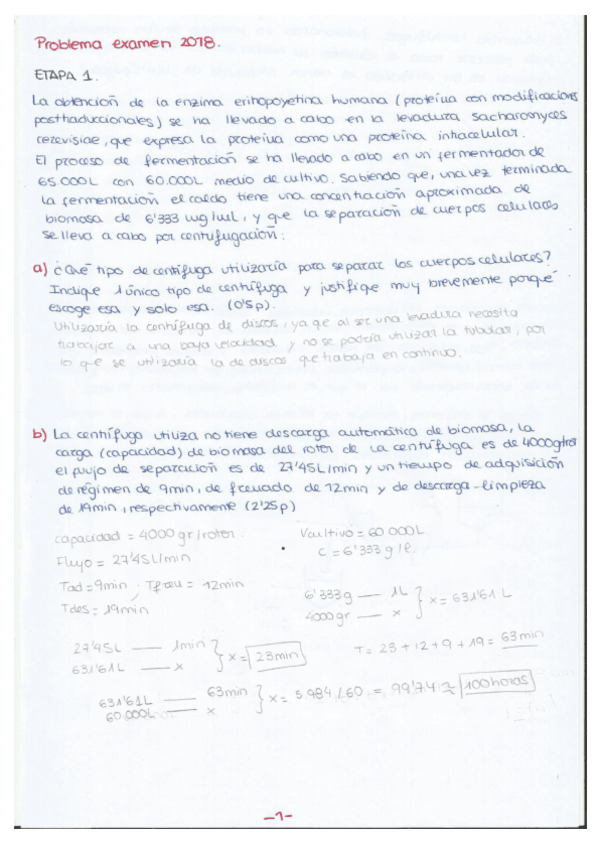 Problema examen 2018.
ETAPA 1.
La obtención de la enzima eritropoyetina humana (proteína con modificaciones
posttraduccionales) se ha llevado a cabo en la levadura sacharomyces
cerevisiae, que expresa la proteína como una proteína intracelular.
El proceso de fermentación se ha llevado a cabo en un fermentador de
65.000L con 60.000L medio de cultivo. Sabiendo que, una vez terminada
la fermentación el caldo tiene una concentración aproximada de
biomasa de 6'333 ug/uL, y que la separación de cuerpos celulares
se lleva a cabo por centrifugación:
a) ¿Qué tipo de centrífuga utilizaría para separar los cuerpos celulares?
Indique 1 único tipo de centrífuga y justifique muy brevemente porqué
escoge esa y solo esa. (0'5p).
Utilizaría la centrífuga de discos, ya que al ser una levadura necesita
trabajar a una baja velocidad y no se podría utilizar la tubular, por
lo que se utilizaría la de discos que trabaja en continuo.
b) La centrífuga utiliza no tiene descarga automática de biomasa, la
carga (capacidad) de biomasa del rotor de la centrífuga es de 4000g/rotor
el flujo de separación es de 27'45L/min y un tiempo de adquisición
de régimen de 9min, de frenado de 12min y de descarga-limpieza
de 19min, respectivamente (2'25p)
capacidad = 4000 gr/rotor.
Vcultivo = 60.000L
Flujo = 27'45L/min
C = 6'333 g/l.
Tad = 9min . Tfren = 12min
Tdes = 19min
6'333g — 1L
4000gr — x
x = 631'61 L
27'45L — 1min
631'61L — x
x = 23min
T = 23 + 12 + 9 + 19 = 63min
631'61L — 63min
60.000L — x
x = 5.984/60 = 99'74 ≈ 100horas
-1-